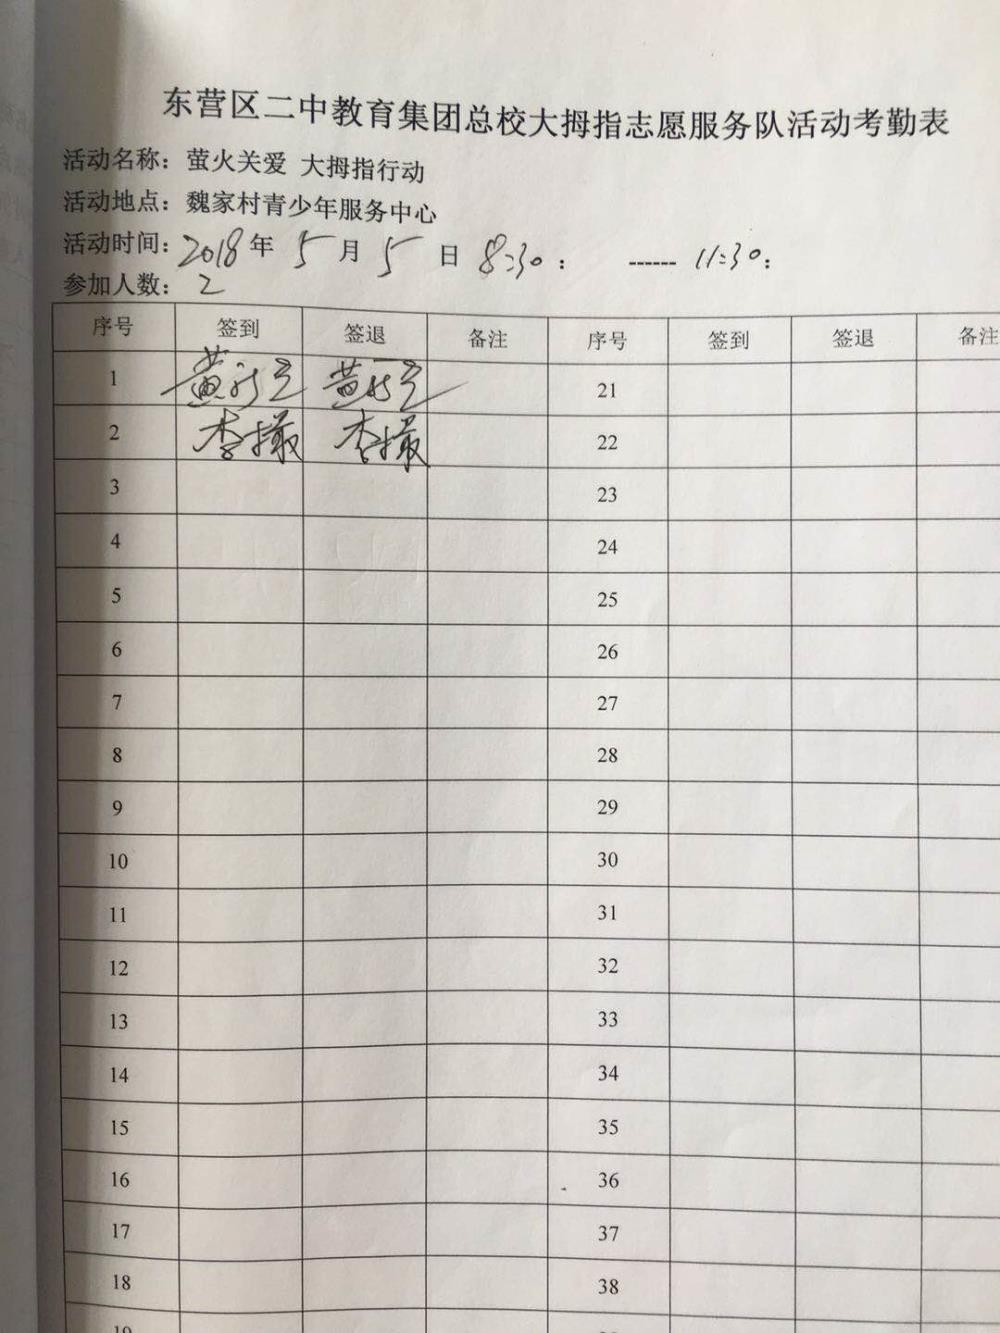 东营区二中教育集团总校大拇指志愿服务队活动考勤表
活动名称：萤火关爱 大拇指行动
活动地点：魏家村青少年服务中心
活动时间：2018年 5 月 5 日 8:30 ： ------ 11:30：
参加人数：2
序号 签到 签退 备注 序号 签到 签退 备注
1 黄 黄 21
2 李撮 李撮 22
3 23
4 24
5 25
6 26
7 27
8 28
9 29
10 30
11 31
12 32
13 33
14 34
15 35
16 36
17 37
18 38
19